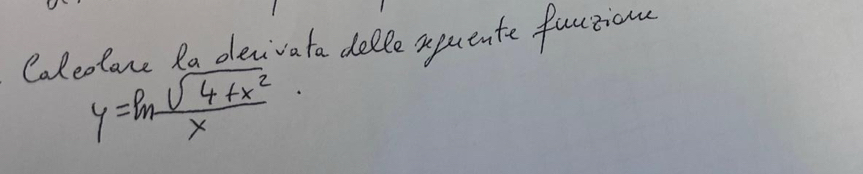 Calcolare la derivata delle seguente funzione
y = ln √4+x² / x .